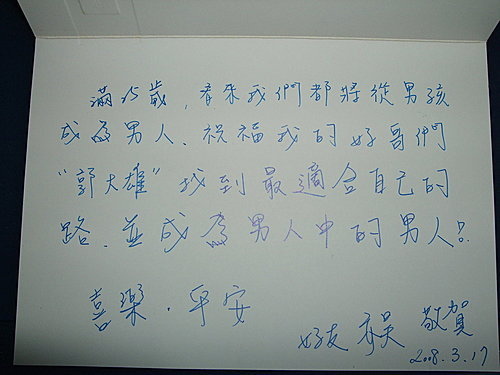 滿25歲，看來我們都將從男孩
成為男人．祝福我的好哥們
"郭大雄"找到最適合自己的
路．並成為男人中的男人!!
喜樂．平安
好友 敬賀
2008.3.17